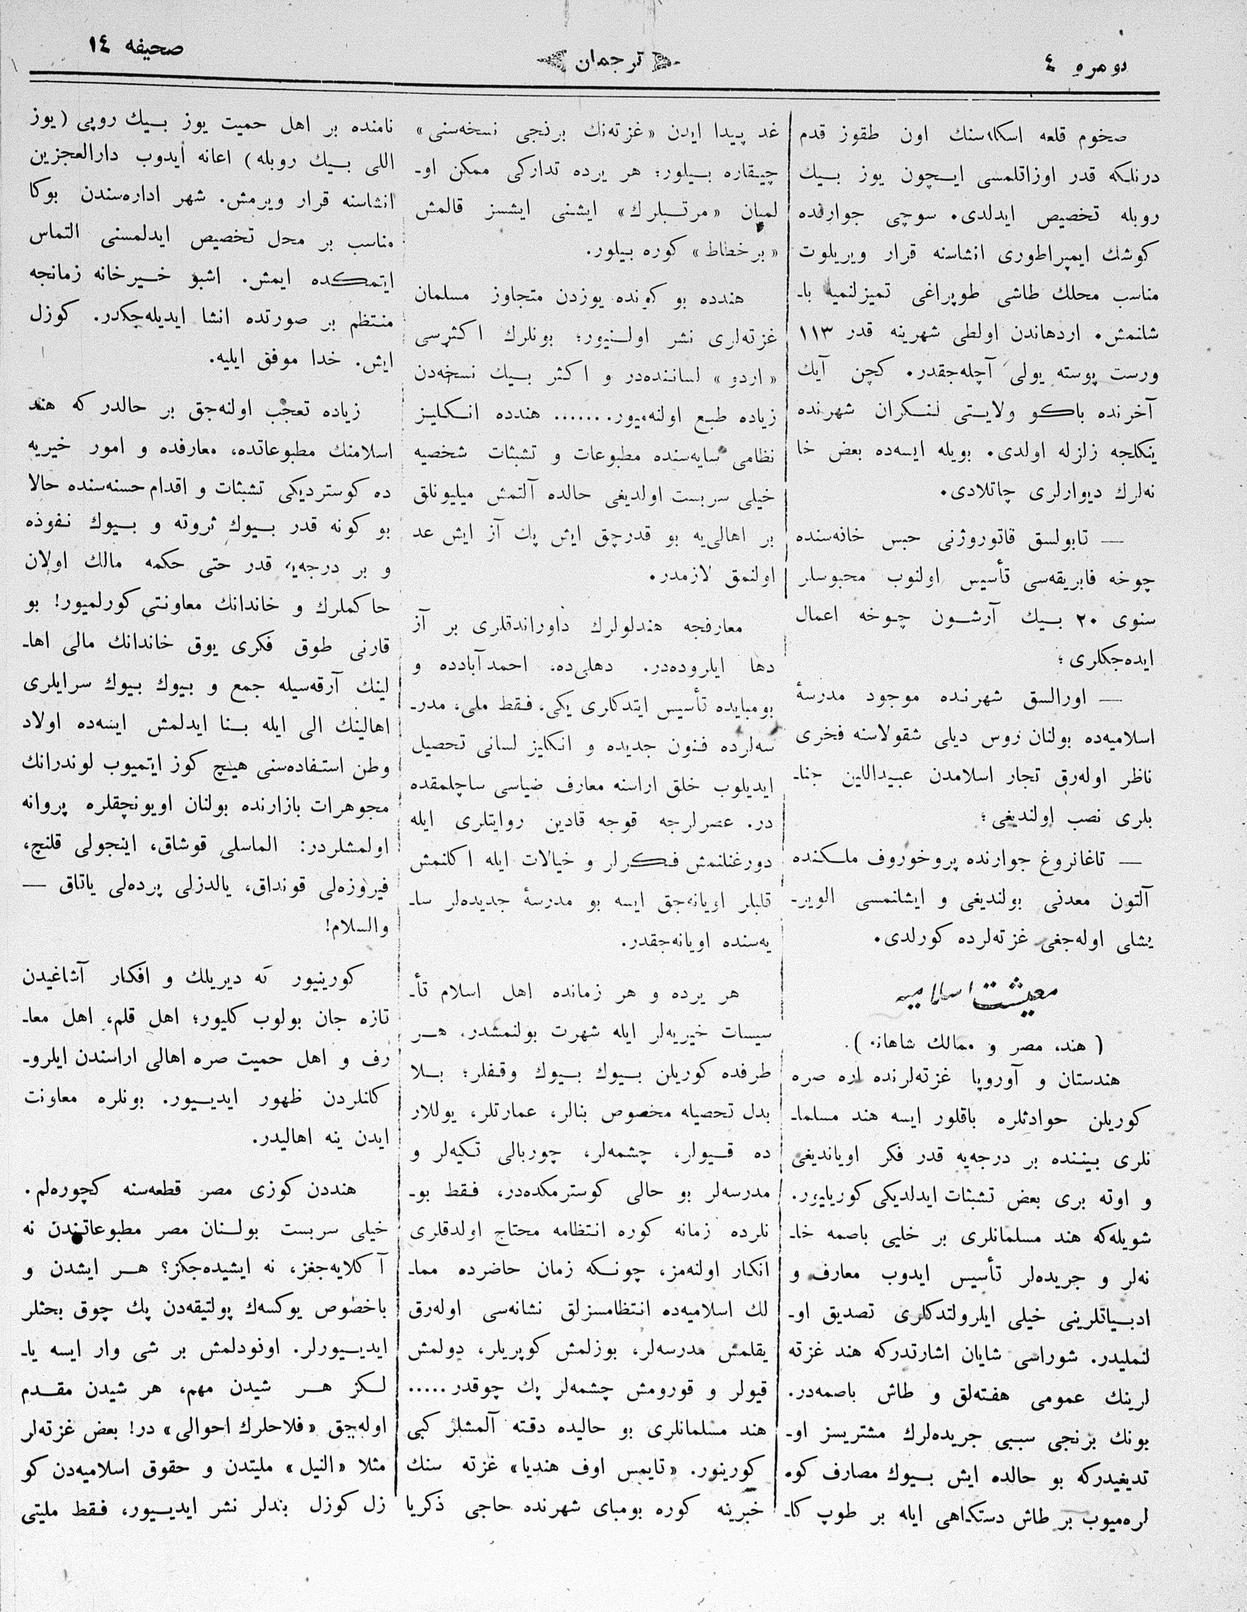 نومرو ٤
ترجمان
صحیفه ١٤
صخوم قلعه اسکله‌سنك اون طقوز قدم
درنلکه قدر اوزاتلمسی ایـچون یوز بـیك
روبله تخصیص ایدلدی. سوچی جوارنده
کوشك ایمپراطوری انشاسنه قرار ویریلوت
مناسب محلك طاشی طوپراغی تمیزلنمیه باـ
شانمش. اردهاندن اولطی شهرینه قدر ١١٣
ورست پوسته یولی آچله‌جقدر. کچن آیك
آخرنده باکو ولایـتی لـنـکران شهرنده
ینکلجه زلزله اولدی. بویله ایسه‌ده بعض خا
نه‌لرك دیوارلری چاتلادی.
— تابولسق قاتوروژنی حبس خانه‌سنده
چوخه فابریقه‌سی تأسیس اولنوب محبوسلر
سنوی ٢٠ بـیك آرشـون چـوخه اعمال
ایده‌جکلری؛
— اورالسق شهرنده موجود مدرسهٔ
اسلامیه‌ده بولنان روس دیلی شقولاسنه فخری
ناظر اوله‌رق تجار اسلامدن عبیداللین جناـ
بلری نصب اولندیغی؛
— تاغانروغ جوارنده پروخوروف ملـکنده
آلتون معدنی بولندیغی و ایشانمسی الویرـ
یشلی اوله‌جغی غزته‌لرده کورلدی.
معیشت اسلامیه
(هند، مصر و ممالك شاهانه).
هندستان و آوروپا غزته‌لرنده اره صره
کوریلن حوادثلره باقلور ایسه هند مسلماـ
نلری بـیننده بر درجه‌یه قدر فکر اویاندیغی
و اوته بری بعض تشبثات ایدلدیکی کوریلیور.
شویله‌که هند مسلمانلری بر خلیی باصمه خاـ
نه‌لر و جریده‌لر تأسیس ایدوب معارف و
ادبـیاتلرینی خیلی ایلرولتدکلری تصدیق اوـ
لنملیدر. شوراسی شایان اشارتدرکه هند غزته
لرینك عمومی هفته‌لق و طاش باصمه‌در.
بونك برنجی سببی جریده‌لرك مشتریسز اوـ
تدیغیدرکه بو حالده ایش بـیوك مصارف کوه
لره‌میوب بر طاش دستکاهی ایله بر طوپ کاـ
غد پیدا ایدن «غزته‌نك برنجی نسخه‌سنی»
چیـقاره بـیلور؛ هر یرده تدارکی ممکن اوـ
لمیان «مرتـبلرك» ایشنی ایشسز قالمش
«برخطاط» کوره بیلور.
هندده بو کونده یوزدن متجاوز مسلمان
غزته‌لری نشر اولـنیور؛ بونلرك اکثرسی
«اردو» لساننده‌در و اکثر بـیك نسخه‌دن
زیاده طبع اولنه‌میور....... هندده انـکلـیز
نظامی سایه‌سنده مطبوعات و تشبثات شخصیه
خیلی سربست اولدیغی حالده آلتمش میلیونلق
بر اهالی‌یه بو قدرچق ایش پك آز ایش عد
اولنمق لازمدر.
معارفجه هندلولرك داوراندقلری بر آز
دها ایلروده‌در. دهلی‌ده، احمدآبادده و
بومبایده تأسیس ایتدکلری یکی، فـقط ملی، مدرـ
سه‌لرده فنون جدیده و انکلیز لسانی تحصیل
ایدیلوب خلق اراسنه معارف ضیاسی ساچلمقده
در. عصرلرجه قوجه قادین روایتلری ایله
دورغنلنمش فـکـرلر و خیالات ایله اکلنمش
قلبلر اویانه‌جق ایسه بو مدرسهٔ جدیده‌لر ساـ
یه‌سنده اویانه‌جقدر.
هر یرده و هر زمانده اهل اسلام تأـ
سیسات خیریه‌لر ایله شهرت بولنمشدر. هــر
طرفده کوریلن بـیوك بـیوك وقـفلر؛ بـلا
بدل تحصیله مخصوص بنالر، عمارتلر، یوللار
ده قـیولر، چشمه‌لر، چوربالی تـکیه‌لر و
مدرسه‌لر بو حالی کوسترمکده‌در، فـقط بوـ
نلرده زمانه کوره انتظامه محتاج اولدقلری
انکار اولنه‌مز، چونـکه زمان حاضرده مماـ
لك اسلامیه‌ده انتظامسزلق نشانه‌سی اوله‌رق
یقلمش مدرسه‌لر، بوزلمش کوپریلر، دولمش
قیولر و قورومش چشمه‌لر پك چوقدر.....
هند مسلمانلری بو حالیده دقته آلمشلر کبی
کورینور. «تایمس اوف هندیا» غزته سنك
خبرینه کوره بومبای شهرنده حاجی ذکریا
نامنده بر اهل حمیت یوز بـیك روپی (یوز
اللی بـیك روبله) اعانه ایدوب دارالعجزین
انشاسنه قرار ویرمش. شهر اداره‌سندن بوکا
مناسب بر محل تخصیص ایدلمسنی التماس
ایتمـکده ایمش. اشبو خـیرخانه زمانجه
منـتظم بر صورتده انشا ایدیله‌جکدر. کوزل
ایش. خدا موفق ایلیه.
زیاده تعجب اولنه‌جق بر حالدر که هند
اسلامنك مطبوعاتده، معارفده و امور خیریه
ده کوستردیکی تشبثات و اقدام حسنه‌سنده حالا
بو کونه قدر بـیوك ثروته و بـیوك نـفوذه
و بر درجه‌یه قدر حتی حکمه مالك اولان
حاکملرك و خاندانك معاونتی کورلمیور! بو
قارنی طوق فکری یوق خاندانك مالی اهاـ
لینك آرقه‌سیله جمع و بـیوك بـیوك سرایلری
اهالینك الی ایله بـنا ایدلمش ایسه‌ده اولاد
وطن استـفاده‌سنی هیـچ کوز ایتمیوب لوندرانك
مجوهرات بازارنده بولنان اویونچقلره پروانه
اولمشلردر: الماسلی قوشاق، اینجولی قلنچ،
فیروزه‌لی قونداق، یالدزلی پرده‌لی یاتاق —
والسلام!
کورینیور که دیریلك و افکار آشاغیدن
تازه جان بولوب کلیور؛ اهل قلم، اهل معاـ
رف و اهل حمیت صره اهالی اراسندن ایلروـ
کلنلردن ظهور ایدیـیور. بونلره معاونت
ایدن ینه اهالیدر.
هنددن کوزی مصر قطعه‌سنه کچوره‌لم.
خیلی سربست بولـنان مصر مطبوعاتـندن نه
آکلایه‌جغز، نه ایشیده‌جکز؟ هـر ایشدن و
باخصوص یوکسه‌ك پولتیقه‌دن پك چوق بحثلر
ایدیـیورلر. اونودلمش بر شی وار ایسه یاـ
لـکز هــر شیدن مهم، هر شیدن مقـدم
اوله‌جق «فلاحلرك احوالی» در! بعض غزته‌لر
مثلا «النیل» ملیتدن و حقوق اسلامیه‌دن کو
زل کوزل بندلر نشر ایدیـیور، فـقط ملیتی